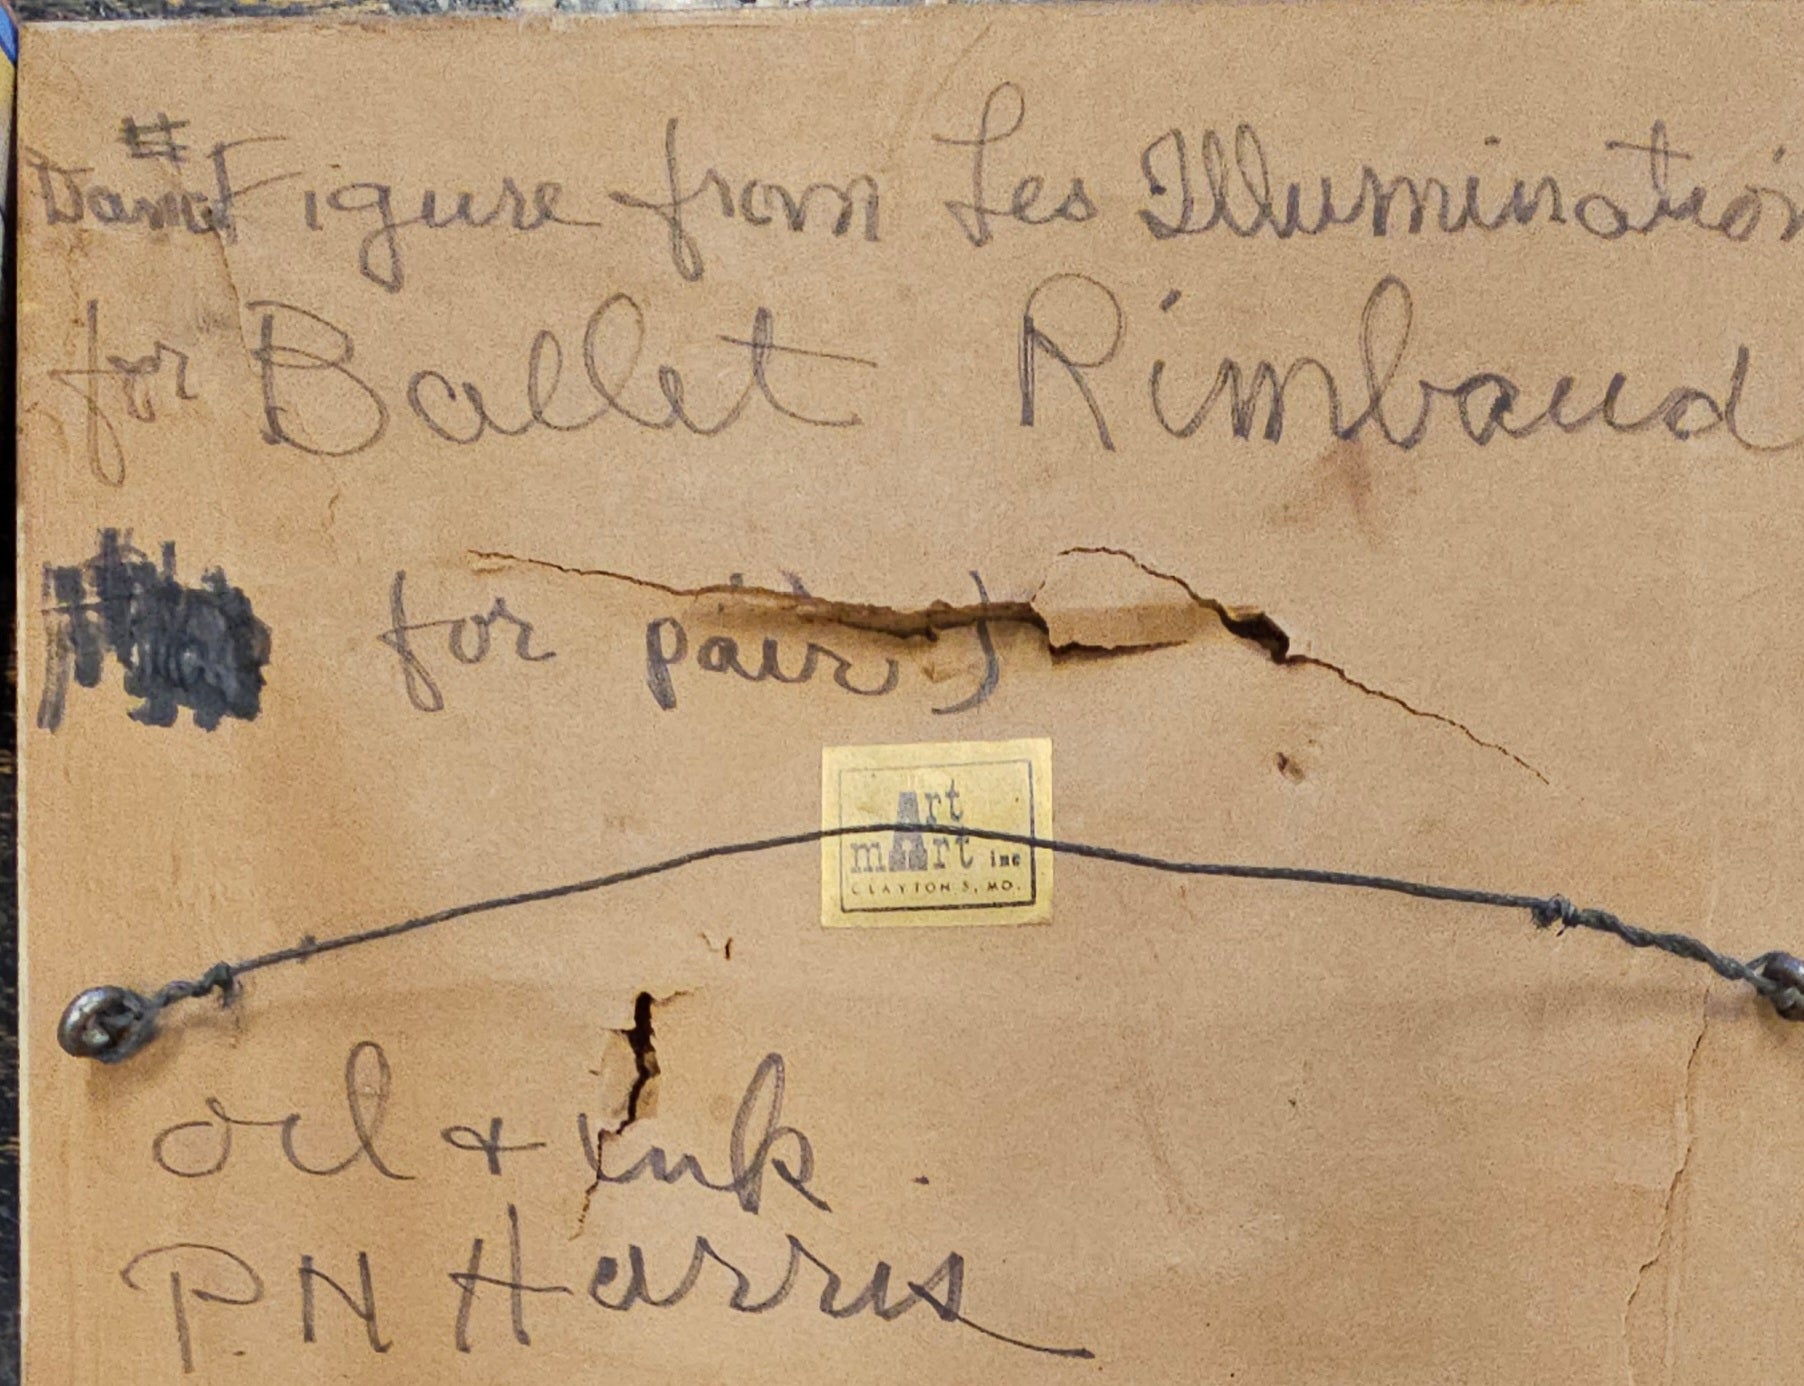 #
Figure from Les Illumination
for Ballet Rimbaud
for pair)
Art
mArt inc
CLAYTON 5, MO.
oil & ink.
P.N Harris